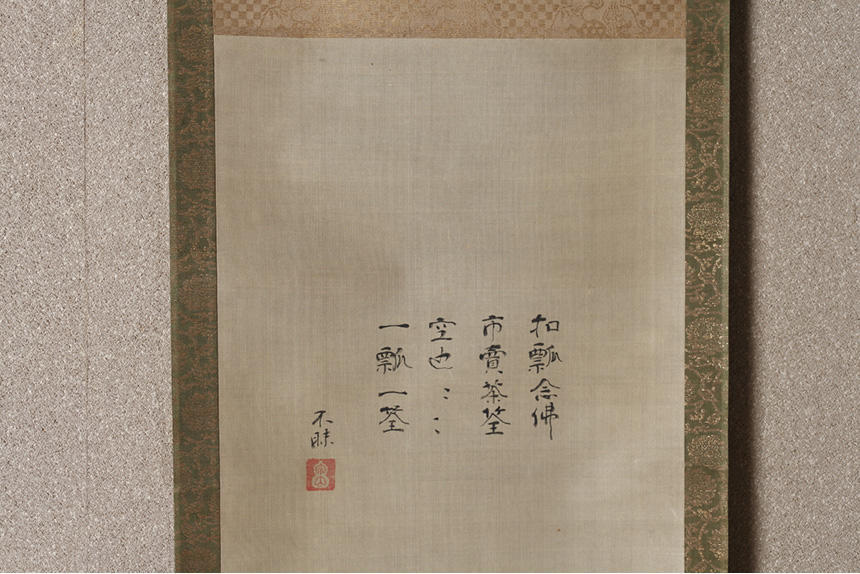 扣瓢念佛
市賣茶筌
空也〻〻
一瓢一筌
不昧